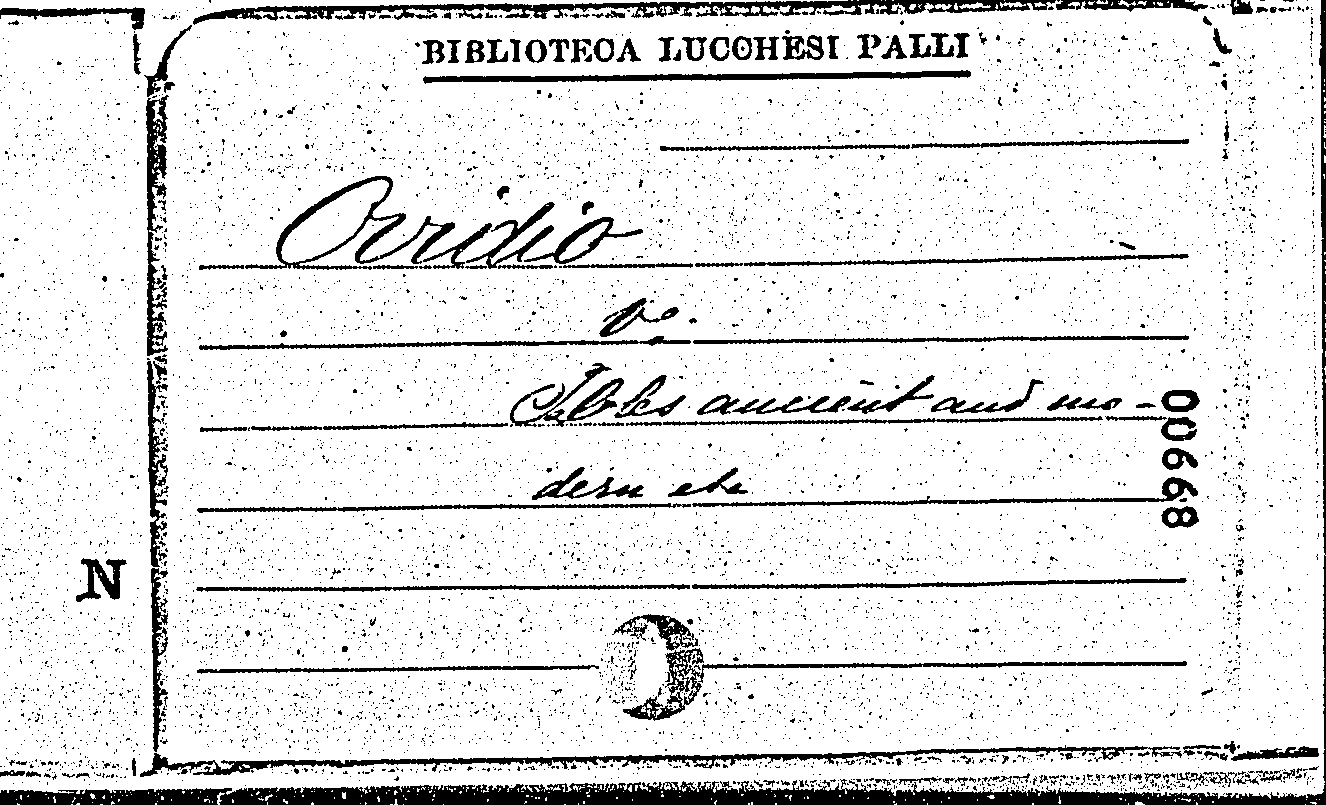 BIBLIOTECA LUCCHESI PALLI
Ovidio
ve.
Fables ancient and mo-
dern etc
00668
N